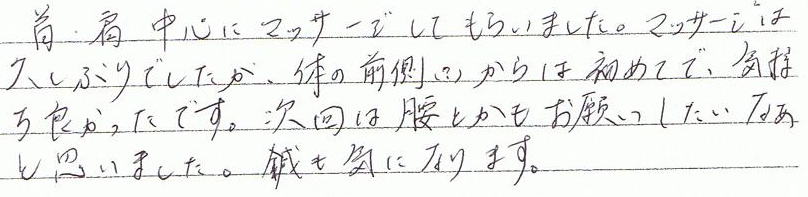 首・肩中心にマッサージしてもらいました。マッサージは
久しぶりでしたが、体の前側(?)からは初めてで、気持
ち良かったです。次回は腰とかもお願いしたいなあ
と思いました。鍼も気になります。